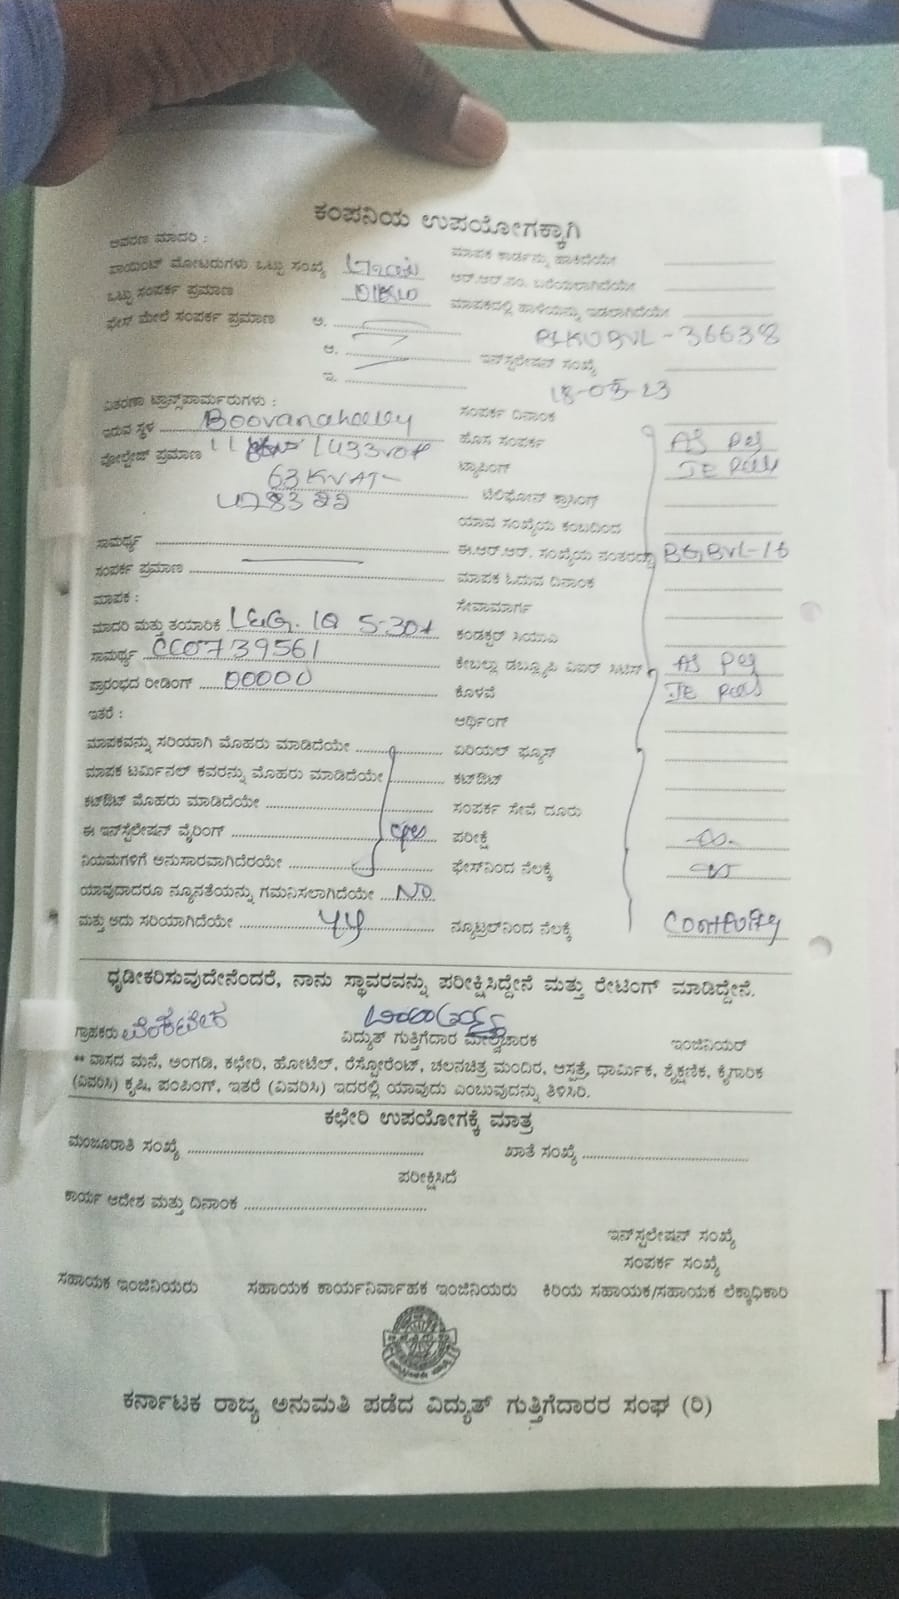 ಕಂಪನಿಯ ಉಪಯೋಗಕ್ಕಾಗಿ
ಆವರಣ ಮಾದರಿ :
ಪಾಯಿಂಟ್ ಮೋಟರುಗಳು ಒಟ್ಟು ಸಂಖ್ಯೆ
ಒಟ್ಟು ಸಂಪರ್ಕ ಪ್ರಮಾಣ
ಫೇಸ್ ಮೇಲೆ ಸಂಪರ್ಕ ಪ್ರಮಾಣ ಅ.
ಆ.
ಇ.
ಮಾಪಕ ಕಾರ್ಡನ್ನು ಹಾಕಿದೆಯೇ
ಆರ್.ಆರ್.ನಂ. ಬರೆಯಲಾಗಿದೆಯೇ
ಮಾಪಕದಲ್ಲಿ ಹಾಳೆಯನ್ನು ಇಡಲಾಗಿದೆಯೇ
BLKUBVL-36638
ಇನ್‌ಸ್ಟಲೇಷನ್ ಸಂಖ್ಯೆ
18-05-23
ವಿತರಣಾ ಟ್ರಾನ್ಸ್‌ಪಾರ್ಮರುಗಳು :
ಇರುವ ಸ್ಥಳ Boovanahally
ವೋಲ್ಟೇಜ್ ಪ್ರಮಾಣ
63 KVA
ಸಾಮರ್ಥ್ಯ
ಸಂಪರ್ಕ ಪ್ರಮಾಣ
ಮಾಪಕ :
ಮಾದರಿ ಮತ್ತು ತಯಾರಿಕೆ L&G. 1Ø 5-30A
ಸಾಮರ್ಥ್ಯ CC0739561
ಪ್ರಾರಂಭದ ರೀಡಿಂಗ್ 00000
ಇತರೆ :
ಮಾಪಕವನ್ನು ಸರಿಯಾಗಿ ಮೊಹರು ಮಾಡಿದೆಯೇ
ಮಾಪಕ ಟರ್ಮಿನಲ್ ಕವರನ್ನು ಮೊಹರು ಮಾಡಿದೆಯೇ
ಕಟ್‌ಔಟ್ ಮೊಹರು ಮಾಡಿದೆಯೇ
ಈ ಇನ್‌ಸ್ಟಲೇಷನ್ ವೈರಿಂಗ್
ನಿಯಮಗಳಿಗೆ ಅನುಸಾರವಾಗಿದೆರಯೇ
ಯಾವುದಾದರೂ ನ್ಯೂನತೆಯನ್ನು ಗಮನಿಸಲಾಗಿದೆಯೇ NO
ಮತ್ತು ಅದು ಸರಿಯಾಗಿದೆಯೇ
ಸಂಪರ್ಕ ದಿನಾಂಕ
ಹೊಸ ಸಂಪರ್ಕ As per
ಟ್ಯಾಪಿಂಗ್ IE Rules
ಟೆಲಿಫೋನ್ ಕ್ರಾಸಿಂಗ್
ಯಾವ ಸಂಖ್ಯೆಯ ಕಂಬದಿಂದ
ಈ.ಆರ್.ಆರ್. ಸಂಖ್ಯೆಯ ನಂತರದ್ದು BG,BVL-16
ಮಾಪಕ ಓದುವ ದಿನಾಂಕ
ಸೇವಾಮಾರ್ಗ
ಕಂಡಕ್ಟರ್ ಸಿಯುಎ
ಕೇಬಲ್ಲು ಡಬ್ಲ್ಯೂಪಿ ವಿಐರ್ As per
ಕೊಳವೆ IE Rules
ಆರ್ಥಿಂಗ್
ಏರಿಯಲ್ ಫ್ಯೂಸ್
ಕಟ್‌ಔಟ್
ಸಂಪರ್ಕ ಸೇವೆ ದೂರು
ಪರೀಕ್ಷೆ
ಫೇಸ್‌ನಿಂದ ನೆಲಕ್ಕೆ
ನ್ಯೂಟ್ರಲ್‌ನಿಂದ ನೆಲಕ್ಕೆ
ಧೃಡೀಕರಿಸುವುದೇನೆಂದರೆ, ನಾನು ಸ್ಥಾವರವನ್ನು ಪರೀಕ್ಷಿಸಿದ್ದೇನೆ ಮತ್ತು ರೇಟಿಂಗ್ ಮಾಡಿದ್ದೇನೆ.
ಗ್ರಾಹಕರು ವೆಂಕಟೇಶ ವಿದ್ಯುತ್ ಗುತ್ತಿಗೆದಾರ ಮೇಲ್ವಿಚಾರಕ ಇಂಜಿನಿಯರ್
** ವಾಸದ ಮನೆ, ಅಂಗಡಿ, ಕಛೇರಿ, ಹೋಟೆಲ್, ರೆಸ್ಟೋರೆಂಟ್, ಚಲನಚಿತ್ರ ಮಂದಿರ, ಆಸ್ಪತ್ರೆ, ಧಾರ್ಮಿಕ, ಶೈಕ್ಷಣಿಕ, ಕೈಗಾರಿಕ
(ವಿವರಿಸಿ) ಕೃಷಿ, ಪಂಪಿಂಗ್, ಇತರೆ (ವಿವರಿಸಿ) ಇದರಲ್ಲಿ ಯಾವುದು ಎಂಬುವುದನ್ನು ತಿಳಿಸಿರಿ.
ಕಛೇರಿ ಉಪಯೋಗಕ್ಕೆ ಮಾತ್ರ
ಮಂಜೂರಾತಿ ಸಂಖ್ಯೆ ಖಾತೆ ಸಂಖ್ಯೆ
ಪರೀಕ್ಷಿಸಿದೆ
ಕಾರ್ಯ ಆದೇಶ ಮತ್ತು ದಿನಾಂಕ
ಇನ್‌ಸ್ಟಲೇಷನ್ ಸಂಖ್ಯೆ
ಸಂಪರ್ಕ ಸಂಖ್ಯೆ
ಸಹಾಯಕ ಇಂಜಿನಿಯರು ಸಹಾಯಕ ಕಾರ್ಯನಿರ್ವಾಹಕ ಇಂಜಿನಿಯರು ಕಿರಿಯ ಸಹಾಯಕ/ಸಹಾಯಕ ಲೆಕ್ಕಾಧಿಕಾರಿ
ಕರ್ನಾಟಕ ರಾಜ್ಯ ಅನುಮತಿ ಪಡೆದ ವಿದ್ಯುತ್ ಗುತ್ತಿಗೆದಾರರ ಸಂಘ (ರಿ)